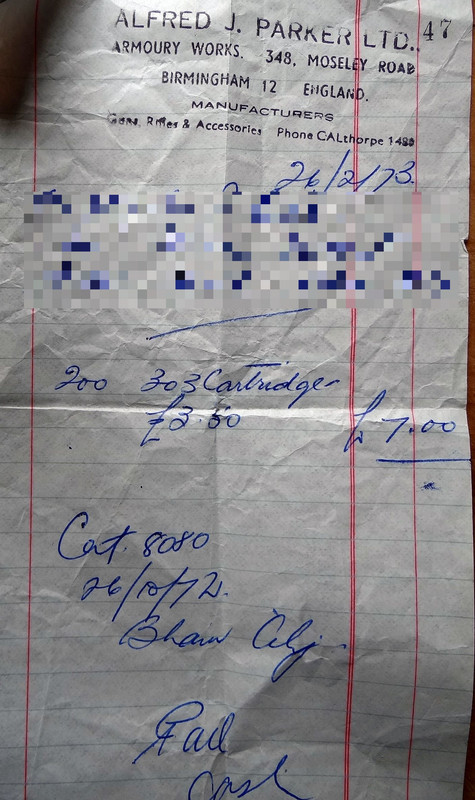 ALFRED J. PARKER LTD.. 47
ARMOURY WORKS. 348, MOSELEY ROAD
BIRMINGHAM 12 ENGLAND.
MANUFACTURERS
Guns, Rifles & Accessories Phone CALthorpe 1489
26/2/73.
200 303 Cartridges
£3.50 £7.00
Cert. 8080
26/10/72.
Paid
Cash